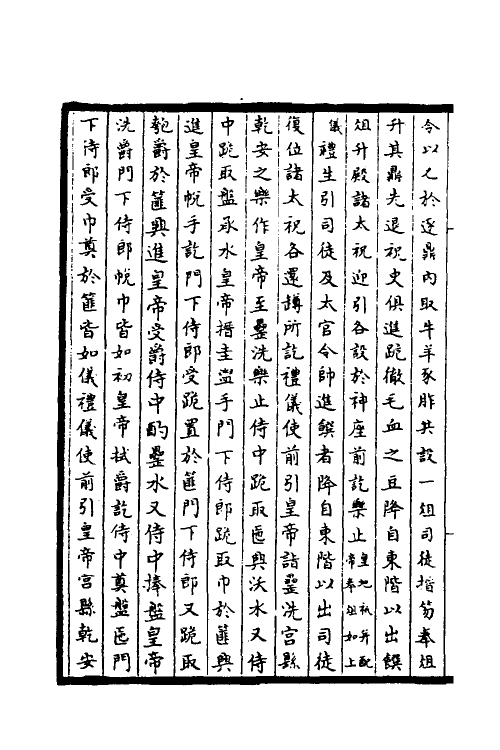 令以匕於逐鼎内取牛羊豕胙共設一俎司徒搢笏奉俎
升其鼎先退祝史俱進跪徹毛血之豆降自東階以出饌
俎升殿諸太祝迎引各設於神座前訖樂止皇地祇并配帝奉俎如上
儀禮生引司徒及太官令帥進饌者降自東階以出司徒
復位諸太祝各還罇所訖禮儀使前引皇帝詣罍洗宫縣
乾安之樂作皇帝至罍洗樂止侍中跪取匜興沃水又侍
中跪取盤承水皇帝搢圭盥手門下侍郎跪取巾於篚興
進皇帝帨手訖門下侍郎受跪置於篚門下侍郎又跪取
匏爵於篚興進皇帝受爵侍中酌罍水又侍中捧盤皇帝
洗爵門下侍郎帨巾皆如初皇帝拭爵訖侍中奠盤匜門
下侍郎受巾奠於篚皆如儀禮儀使前引皇帝宫縣乾安